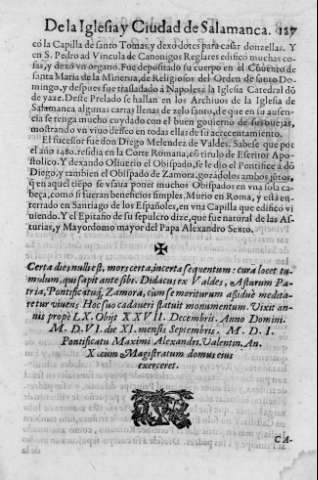 De la Iglesia y Ciudad de Salamanca. 127
cō la Capilla de santo Tomas, y dexò dotes para casar donzellas. Y
en S. Pedro ad Vincula de Canonigos Reglares edificò muchas co-
sas, y dexò vn organo. Fue depositado su cuerpo en el Cōuento de
santa Maria de la Minerua, de Religiosos del Orden de santo Do-
mingo, y despues fue trasladado à Napoles à la Iglesia Catedral dō
de yaze. Deste Prelado se hallan en los Archiuos de la Iglesia de
Salamanca algunas cartas llenas de zelo santo, de que en su ausen-
cia se tenga mucho cuydado con el buen gouierno de sus ouejas,
mostrando vn viuo desseo en todas ella de su acrecentamiento.
El sucessor fue don Diego Melendez de Valdes. Sabese que por
el año 1480. residia en la Corte Romana, cō titulo de Escritor Apos-
tolico. Y dexando Oliuerio el Obispado, se le dio el Pontifice à dō
Diego, y tambien el Obispado de Zamora, gozādolos ambos jūtos,
q̄ en aquel tiēpo se vsaua poner muchos Obispados en vna sola ca
beça, como si fueran beneficios simples. Murio en Roma, y està en-
terrado en Santiago de los Españoles, en vna Capilla que edificò vi
uiendo. Y el Epitafio de su sepulcro dize, que fue natural de las As-
turias, y Mayordomo mayor del Papa Alexandro Sexto.
Certa dies nulli est, mors certa, incerta sequentum : cura locet tu-
mulum, qui sapit ante sibi. Didacus ex Valdes, Asturum Pa-
tria, Pontificatusq́; Zamora, cùm se moriturum aßiduè medita-
retur viuens: Hoc suo cadaueri statuit monumentum. Vixit an-
nis propè LX. Obijt XXVII. Decembris. Anno Domini.
M. D. VI. die XI. mensis Septembris. M. D. I.
Pontificatu Maximi Alexandri. Valentin. An.
X. cum Magistratum domus eius
exerceret.
CA-